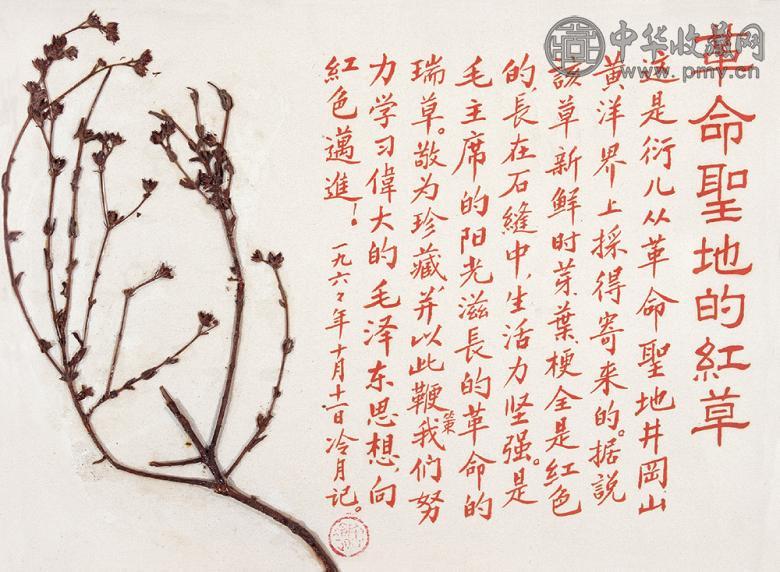 革命聖地的紅草
这是衍儿从革命聖地井岡山
黄洋界上採得寄来的。据説
該草新鮮时芽葉梗全是紅色
的,長在石縫中,生活力坚强。是
毛主席的阳光滋長的革命的
瑞草。敬为珍藏,并以此鞭策我们努
力学习偉大的毛泽东思想,向
紅色邁進!
一九六六年十月十一日冷月记。
中华收藏网
www.pmyv.cn